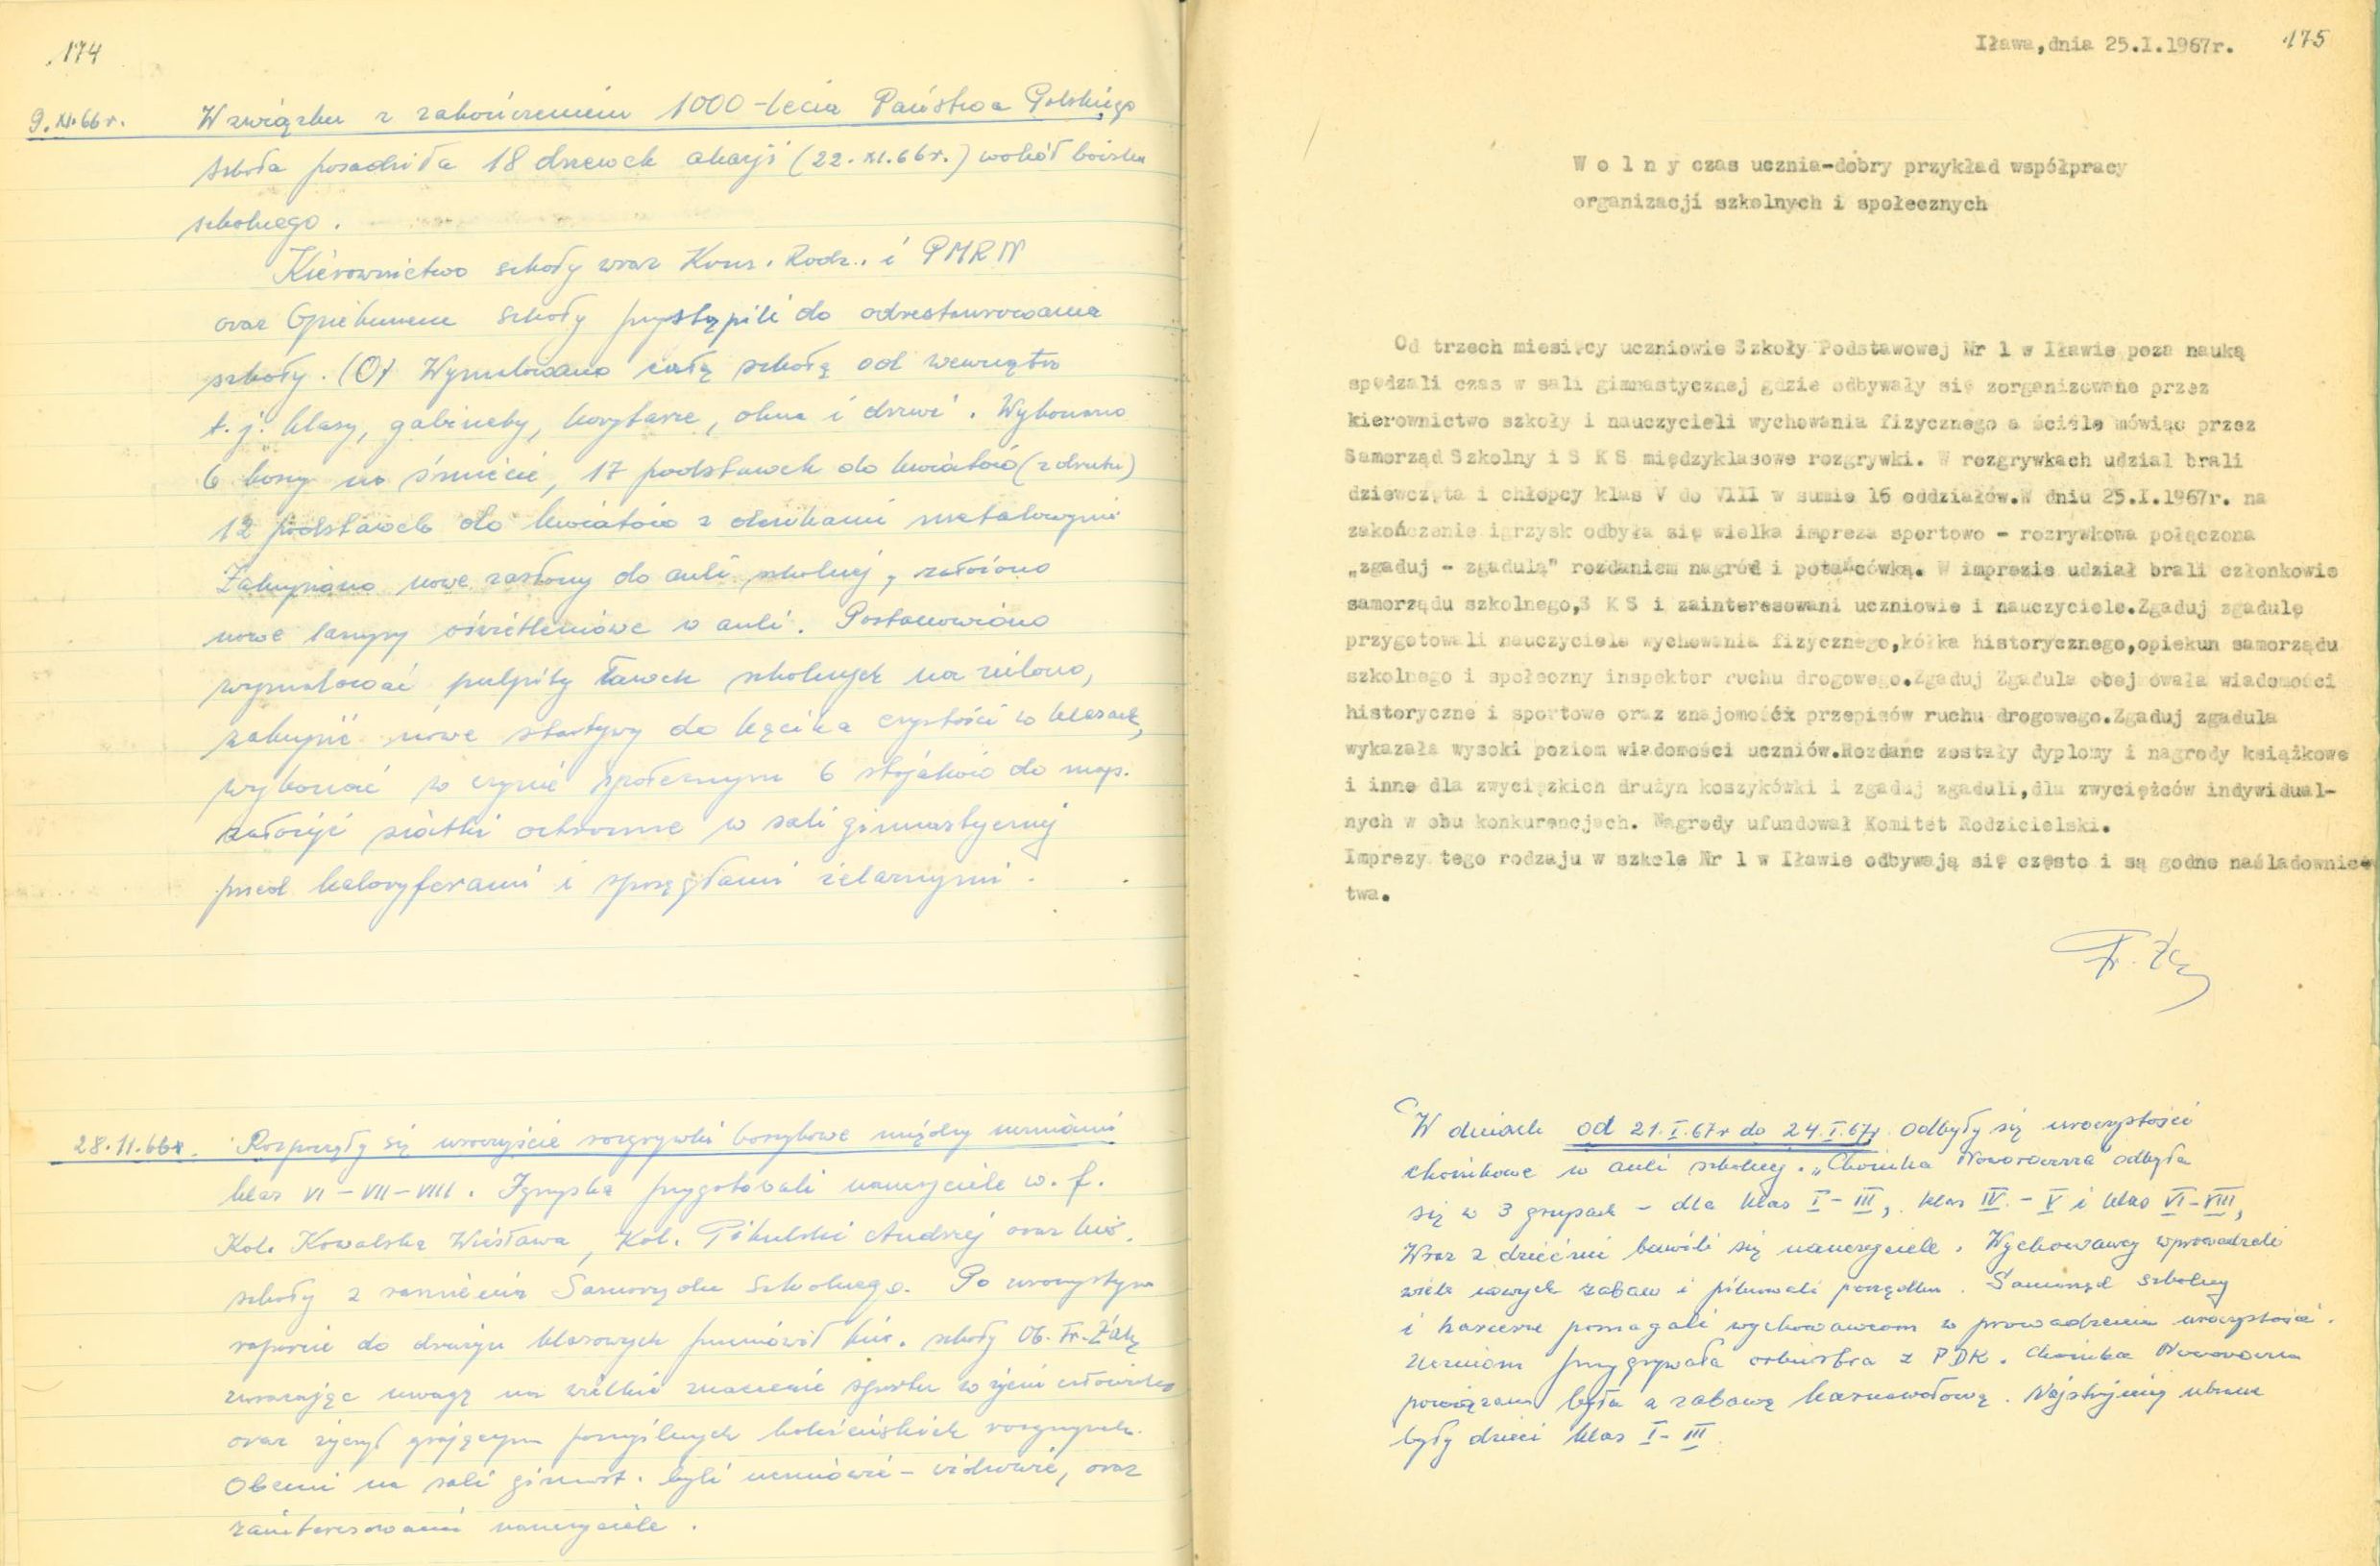 174
9.XI.66r. W związku z zakończeniem 1000-lecia Państwa Polskiego
szkoła posadziła 18 drzewek akacji (22.XI.66r.) wokół boiska
szkolnego.
Kierownictwo szkoły wraz Kom. Rodz. i PMRN
oraz Opiekunem szkoły przystąpili do odrestaurowania
szkoły. Wymalowano całą szkołę od wewnątrz
t.j. klasy, gabinety, korytarze, okna i drzwi. Wykonano
6 koszy na śmiecie, 17 podstawek do kwiatów (z drutu)
12 podstawek do kwiatów z metalowymi
Zakupiono nowe zasłony do auli szkolnej, założono
nowe lampy oświetleniowe w auli. Postanowiono
wymalować pulpity ławek szkolnych na zielono,
zakupić nowe statywy do kącika czystości w klasach,
wykonać w czynie społecznym 6 stojaków do map.
założyć siatki ochronne w sali gimnastycznej
przed kaloryferami i żelaznymi.
28.11.66r. Rozpoczęły się uroczyście rozgrywki koszykowe między uczniami
klas VI-VII-VIII. Igrzyska przygotowali nauczyciele w.f.
Kol. Kowalska Wiesława, Kol. Pikulski Andrzej oraz kier.
szkoły z ramienia Samorządu Szkolnego. Po uroczystym
raporcie do drużyn klasowych przemówił kier. szkoły Ob. Fr. Żak
zwracając uwagę na wielkie znaczenie sportu w życiu człowieka
oraz życzył grającym pomyślnych koleżeńskich rozgrywek.
Obecni na sali gimnast. byli uczniowie - widzowie, oraz
zainteresowani nauczyciele.
Iława,dnia 25.I.1967r. 175
W o l n y czas ucznia-dobry przykład współpracy
organizacji szkolnych i społecznych
Od trzech miesięcy uczniowie Szkoły Podstawowej Nr 1 w Iławie poza nauką
spędzali czas w sali gimnastycznej gdzie odbywały się zorganizowane przez
kierownictwo szkoły i nauczycieli wychowania fizycznego a ściśle mówiąc przez
Samorząd Szkolny i S K S międzyklasowe rozgrywki. W rozgrywkach udział brali
dziewczęta i chłopcy klas V do VIII w sumie 16 oddziałów.W dniu 25.I.1967r. na
zakończenie igrzysk odbyła się wielka impreza sportowo - rozrywkowa połączona
„zgaduj - zgadulą" rozdaniem nagród i potańcówką. W imprezie udział brali członkowie
samorządu szkolnego,S K S i zainteresowani uczniowie i nauczyciele.Zgaduj zgadulę
przygotowali nauczyciele wychowania fizycznego,kółka historycznego,opiekun samorządu
szkolnego i społeczny inspektor ruchu drogowego.Zgaduj Zgadula obejmowała wiadomości
historyczne i sportowe oraz znajomośćx przepisów ruchu drogowego.Zgaduj zgadula
wykazała wysoki poziom wiadomości uczniów.Rozdane zostały dyplomy i nagrody książkowe
i inne dla zwycięzkich drużyn koszykówki i zgaduj zgaduli,dla zwycięźców indywidual-
nych w obu konkurencjach. Nagrody ufundował Komitet Rodzicielski.
Imprezy tego rodzaju w szkole Nr 1 w Iławie odbywają się często i są godne naśladownic-
twa.
W dniach od 21.I.67r do 24.I.67r odbyły się uroczystości
choinkowe w auli szkolnej. „Choinka Noworoczna" odbyła
się w 3 grupach - dla klas I-III, klas IV-V i klas VI-VIII,
Wraz z dziećmi bawili się nauczyciele. Wychowawcy wprowadzili
wiele nowych zabaw i pilnowali porządku. Samorząd szkolny
i harcerze pomagali wychowawcom w prowadzeniu uroczystości.
Uczniom przygrywała orkiestra z PDK. Choinka Noworoczna
powiązana była z zabawą karnawałową. Najstrojniej ubrane
były dzieci klas I-III.